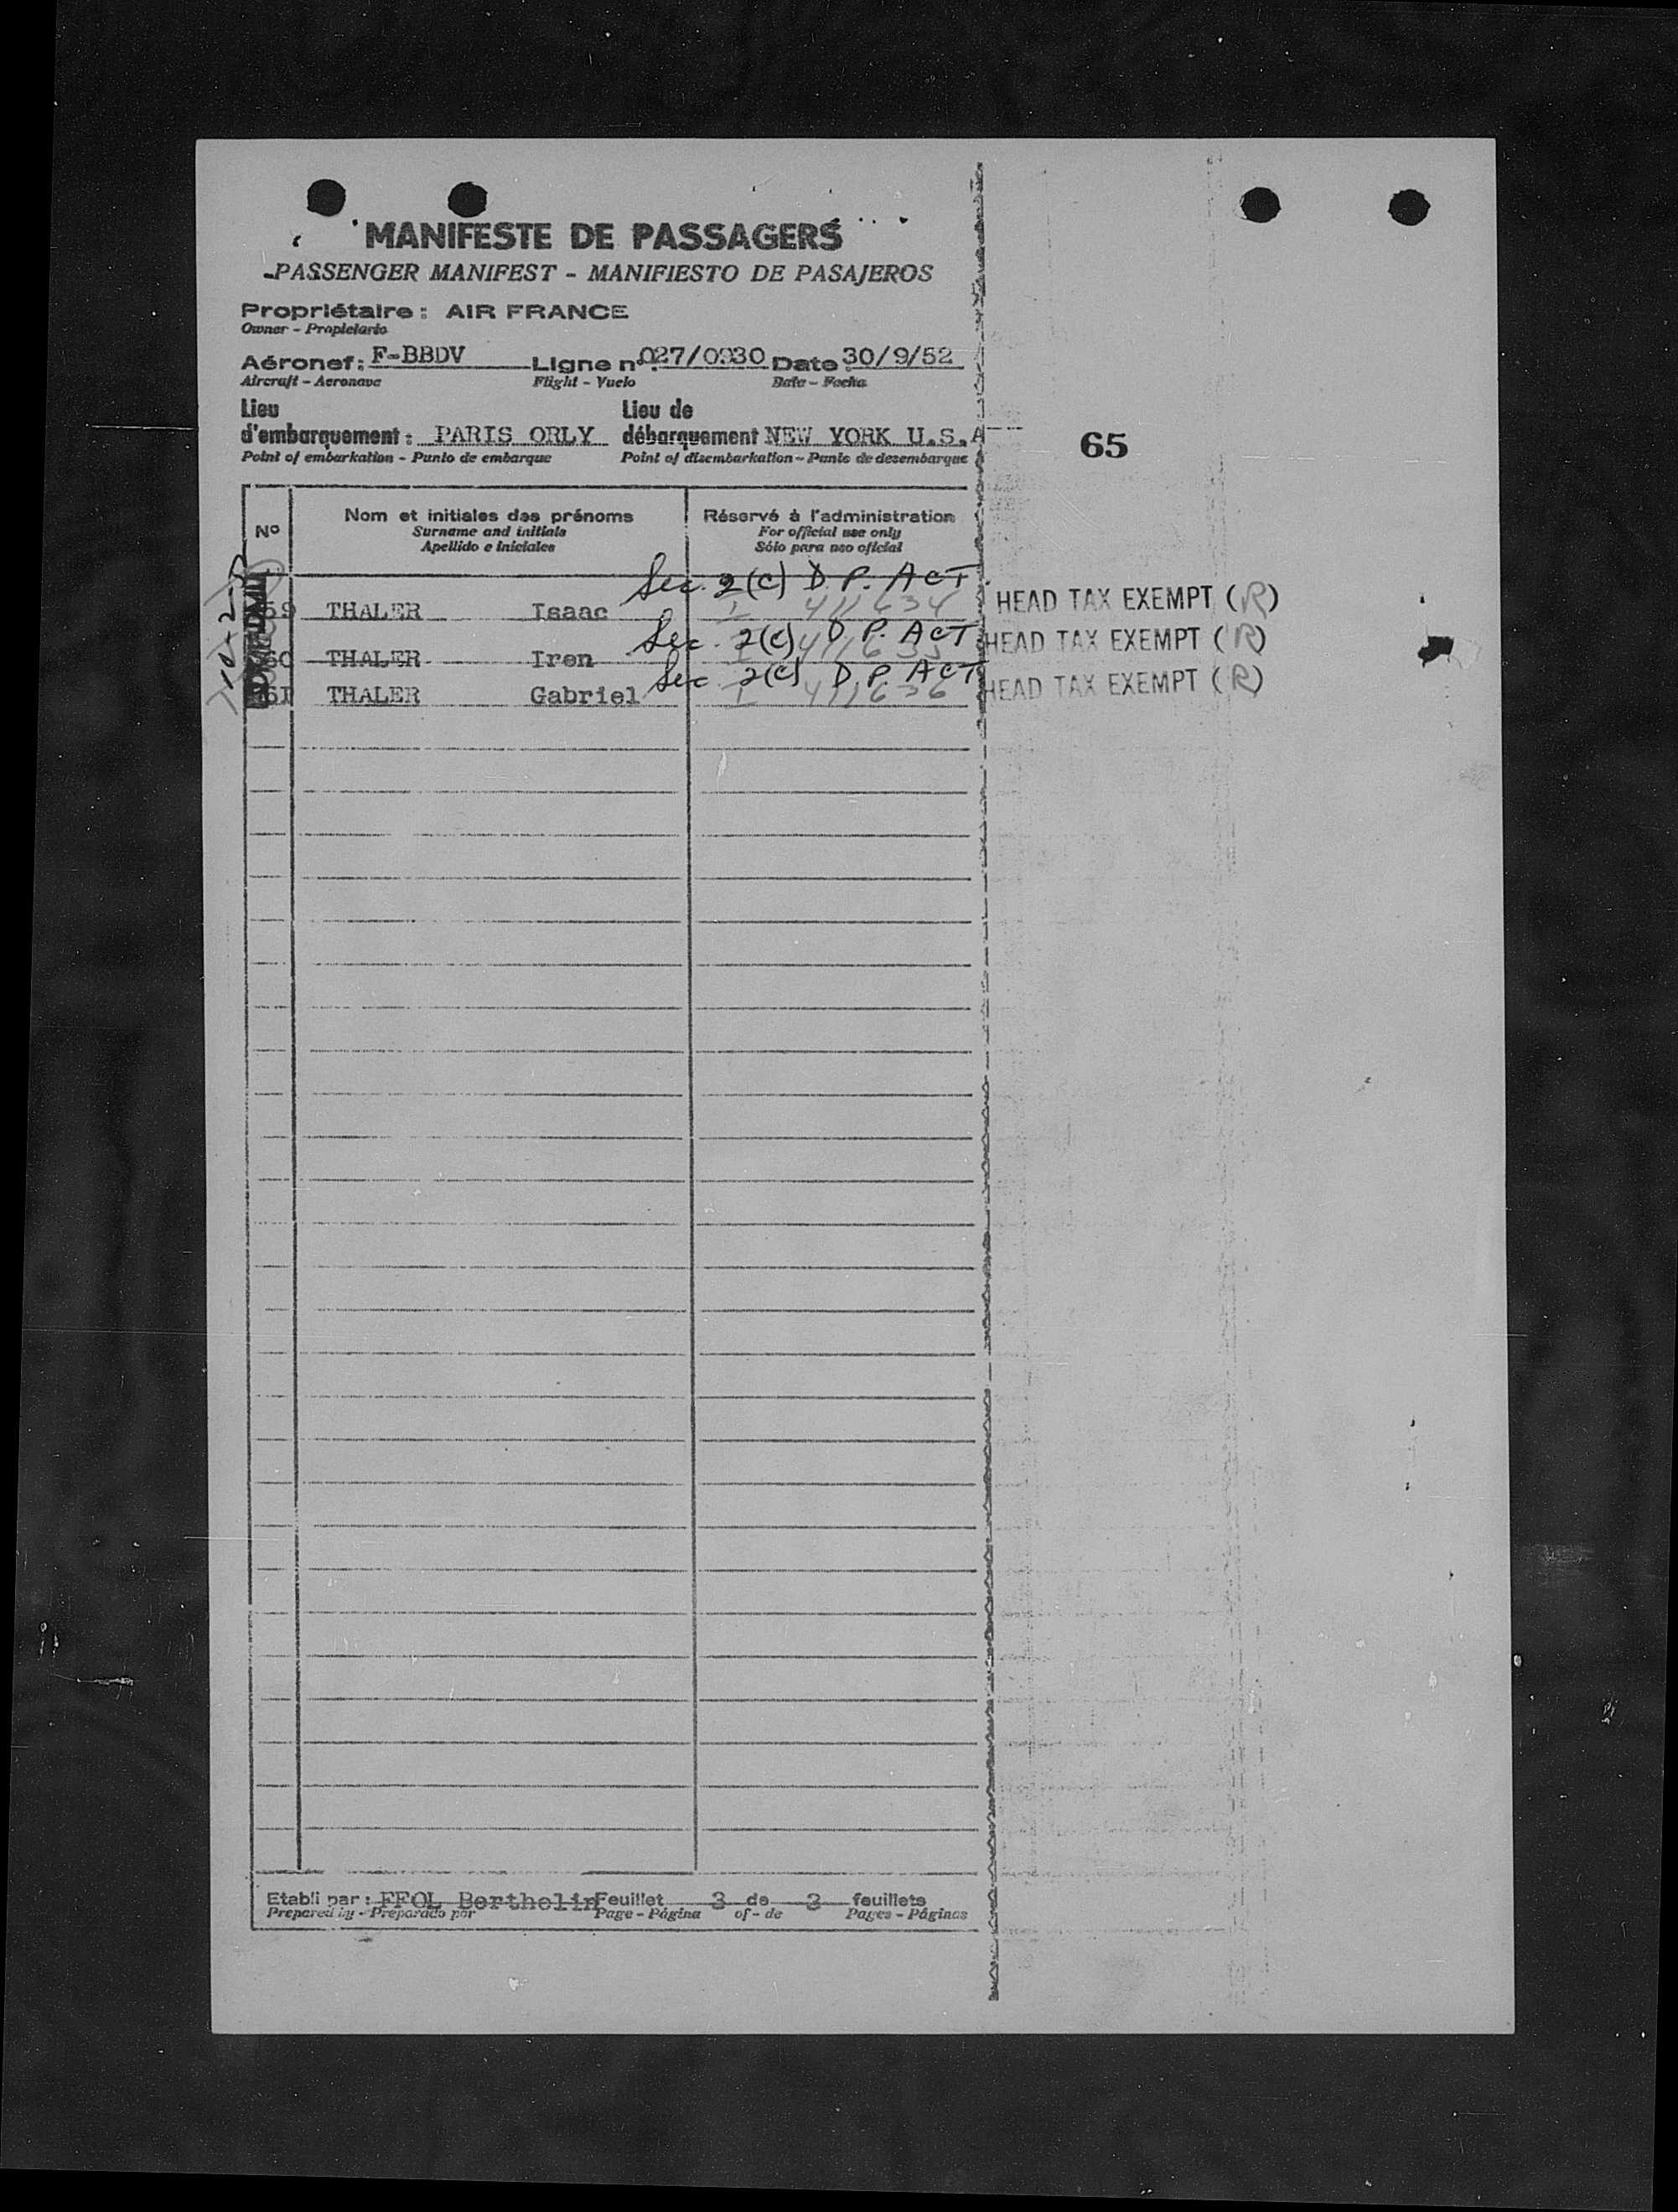 MANIFESTE DE PASSAGERS
PASSENGER MANIFEST - MANIFIESTO DE PASAJEROS
Propriétaire : AIR FRANCE
Owner - Propietario
Aéronef : F-BBDV Ligne n° 027/0930 Date : 30/9/52
Aircraft - Aeronave Flight - Vuelo Date - Fecha
Lieu d'embarquement : PARIS ORLY Lieu de débarquement NEW YORK U.S.A
Point of embarkation - Punto de embarque Point of disembarkation - Punto de desembarque
65
Nº Nom et initiales des prénoms Réservé à l'administration
Surname and initials For official use only
Apellido e iniciales Sólo para uso oficial
Sec. 2(c) D. P. ACT
59 THALER Isaac I 411634 HEAD TAX EXEMPT (R)
Sec. 2(c) D P. ACT
60 THALER Iren I 411635 HEAD TAX EXEMPT (R)
Sec 2(c) D. P. ACT
61 THALER Gabriel I 411636 HEAD TAX EXEMPT (R)
ADMITTED
Etabli par : FFOL Berthelin Feuillet 3 de 3 feuillets
Prepared by - Preparado por Page - Página of - de Pages - Páginas